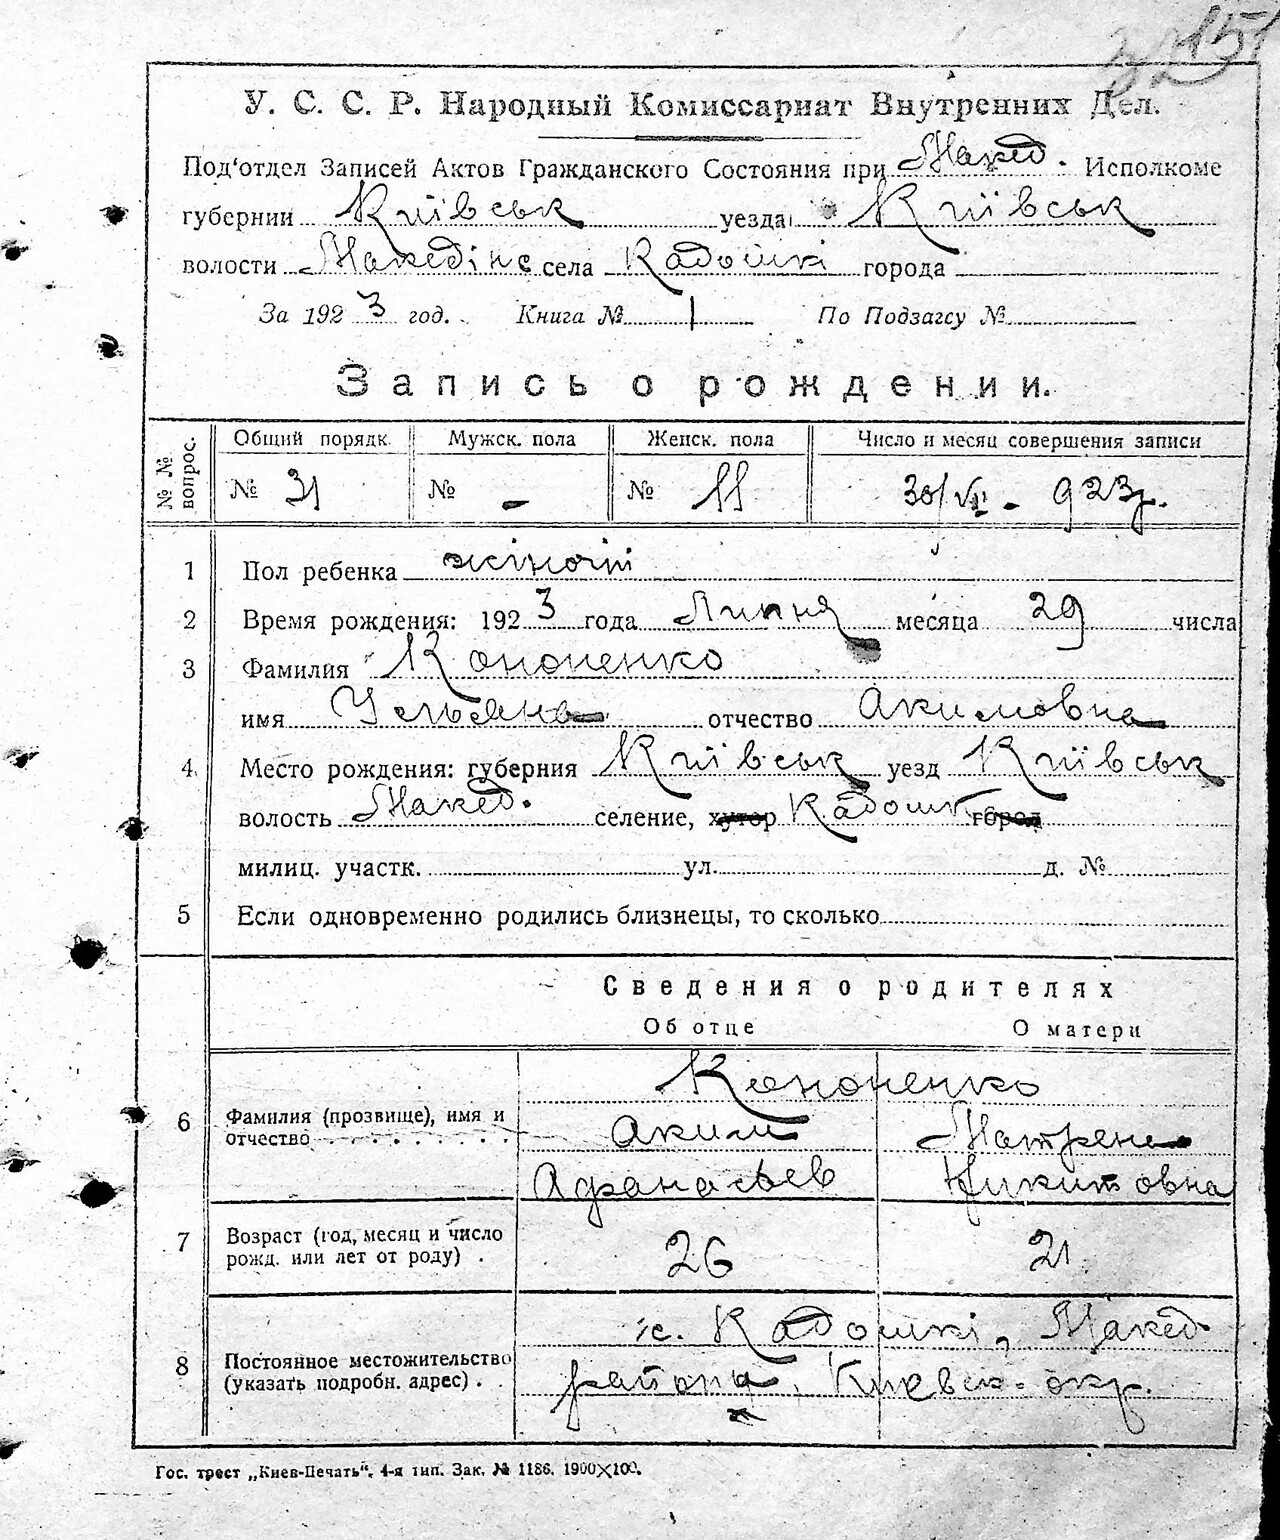 151
У. С. С. Р. Народный Комиссариат Внутренних Дел.
Под'отдел Записей Актов Гражданского Состояния при Макед. Исполкоме
губернии Київськ уезда Київськ
волости Македінс села Кадошкі города
За 1923 год. Книга № 1 По Подзагсу №
Запись о рождении.
№ № вопрос. Общий порядк. Мужск. пола Женск. пола Число и месяц совершения записи
№ 31 № - № 11 30/VII - 923р.
1 Пол ребенка жіночій
2 Время рождения: 1923 года Липня месяца 29 числа
3 Фамилия Кононенко
имя Ульяна отчество Акимовна
4 Место рождения: губерния Київськ уезд Київськ
волость Макед. селение, хутор Кадошк город
милиц. участк. ул. д. №
5 Если одновременно родились близнецы, то сколько
Сведения о родителях
Об отце О матери
Кононенко
6 Фамилия (прозвище), имя и отчество Аким Матрена
Афанасьев Никитовна
7 Возраст (год, месяц и число рожд. или лет от роду) . 26 21
с. Кадошкі, Макед.
8 Постоянное местожительство (указать подробн. адрес) . района, Киевск. окр.
Гос. трест „Киев-Печать“. 4-я тип. Зак. № 1186. 1900×100.